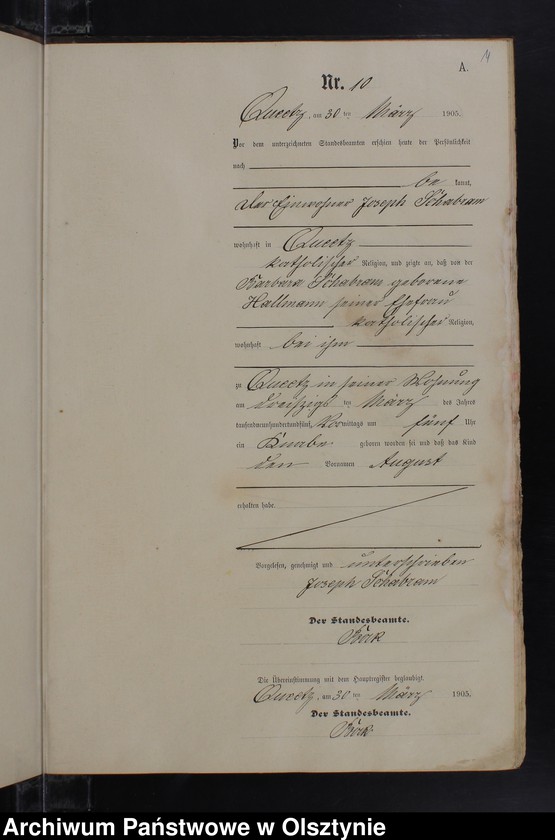 14
A.
Nr. 10
Queetz, am 30 ten März 1905.
Vor dem unterzeichneten Standesbeamten erschien heute der Persönlichkeit
nach
be kannt,
der Einwohner Joseph Schabram
wohnhaft in Queetz
katholischer Religion, und zeigte an, daß von der
Barbara Schabram geborene
Hallmann seiner Ehefrau
katholischer Religion,
wohnhaft bei ihm
zu Queetz in seiner Wohnung
am dreißigsten März des Jahres
tausendneunhundertundfünf, Vormittags um fünf Uhr
ein Knabe geboren worden sei und daß das Kind
den Vornamen August
erhalten habe.
Vorgelesen, genehmigt und unterschrieben
Joseph Schabram
Der Standesbeamte.
Die Übereinstimmung mit dem Hauptregister beglaubigt.
Queetz, am 30 ten März 1905.
Der Standesbeamte.
Archiwum Państwowe w Olsztynie